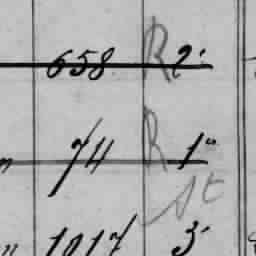 658 R 2
n 74 R 1º
St
n 1017 3